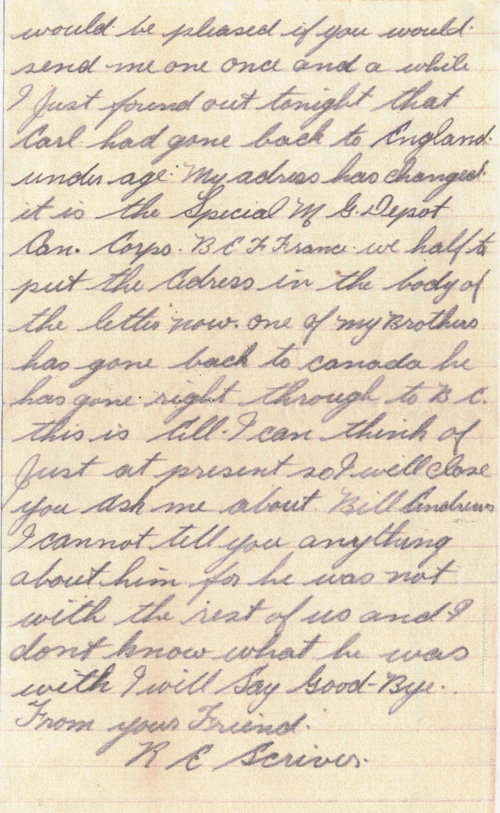 would be pleased if you would
send me one once and a while
I Just found out tonight that
Carl had gone back to England.
under age. My adress has changed.
it is the Special M G. Depot
Can. Corps. B E F France. we half to
put the Adress in the body of
the letter now. one of my Brothers
has gone back to canada he
has gone right through to B C.
this is all. I can think of
Just at present so I will close
you ask me about Bill Andrews
I cannot tell you anything
about him for he was not
with the rest of us and I
dont know what he was
with I will Say Good-Bye.
From your Friend.
R E Scriver.